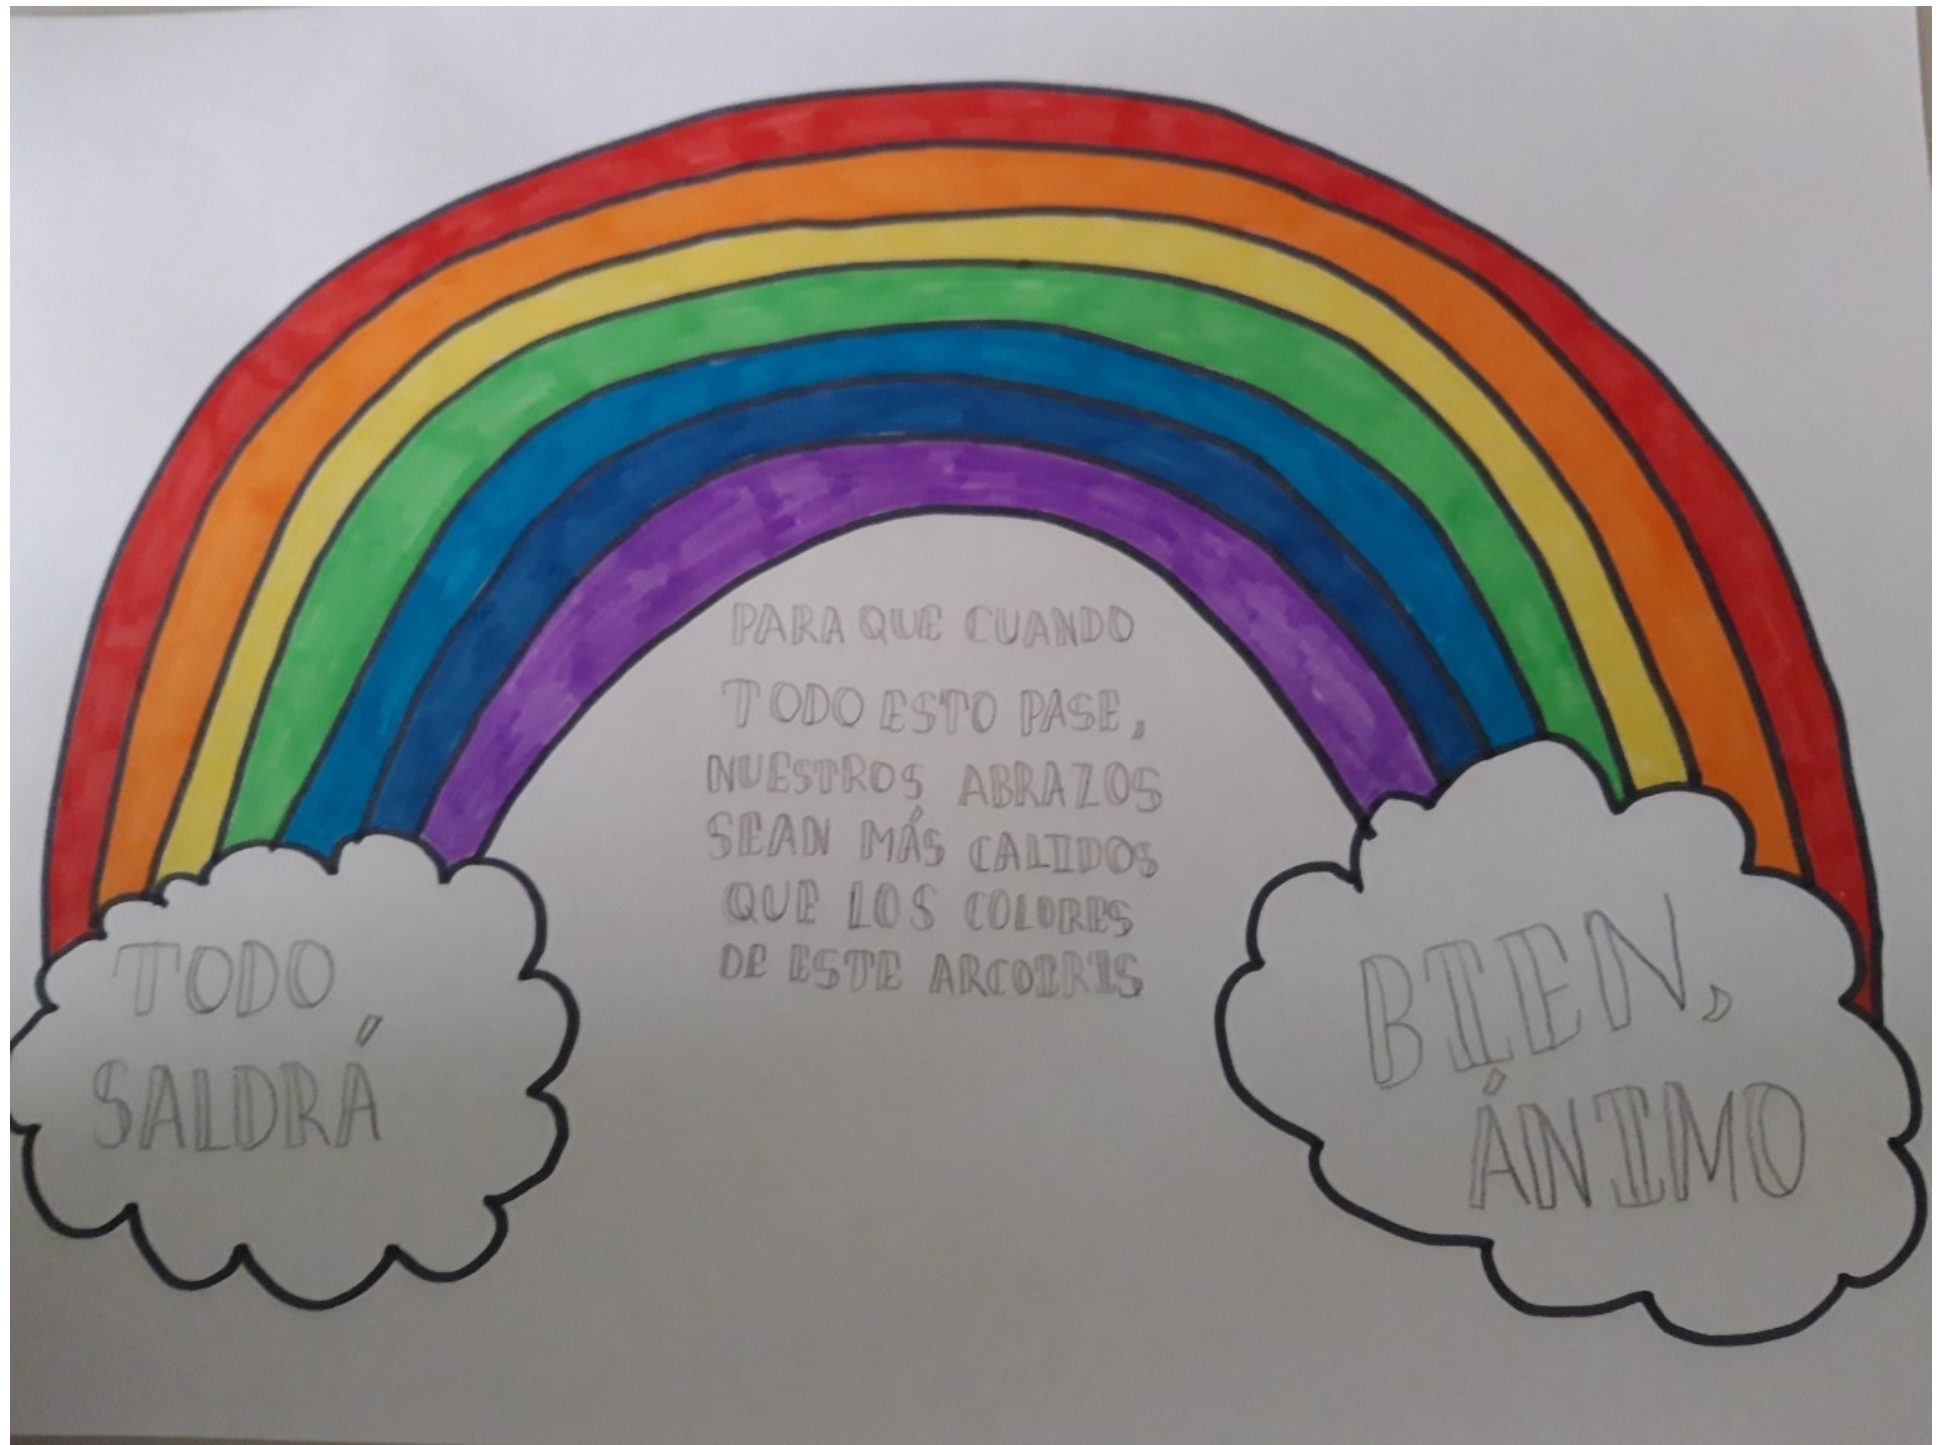 PARA QUE CUANDO
TODO ESTO PASE,
NUESTROS ABRAZOS
SEAN MÁS CALIDOS
QUE LOS COLORES
DE ESTE ARCOIRIS
TODO
SALDRÁ
BIEN,
ÁNIMO